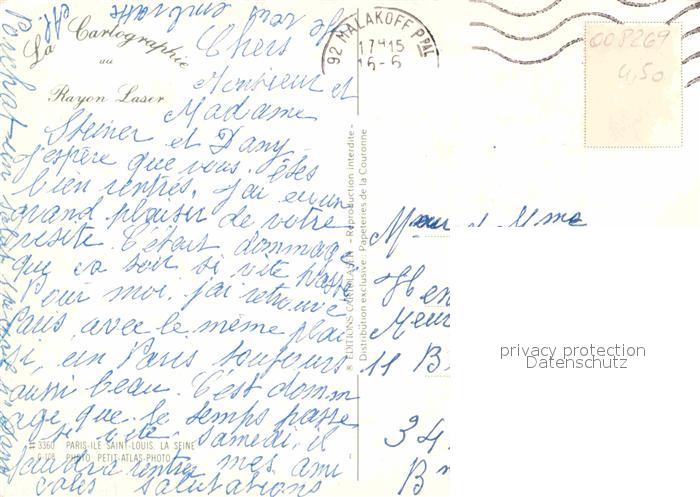 La Cartographie
au
Rayon Laser
Chers
Monsieur et
Madame
Steiner et Dany
J'espère que vous êtes
bien rentrés. J'ai eu un
grand plaisir de votre
visite. C'était dommage
que ça soit si vite passé
Pour moi, j'ai retrouvé
Paris, avec le même plai
si, un Paris toujours
aussi beau. C'est domm
age que le temps passe
si vite, samedi, il
faudra rentrer mes ami
cales salutations
# 3360 PARIS-ILE SAINT-LOUIS. LA SEINE
G 108 PHOTO. PETIT-ATLAS-PHOTO
® EDITIONS CARTOLASER - Reproduction interdite -
Distribution exclusive : Papeteries de la Couronne
92 MALAKOFF Ppal
17H15
16-6
008269
4,50
et Mme
Hen
Meur
11 B
34
B
privacy protection
Datenschutz